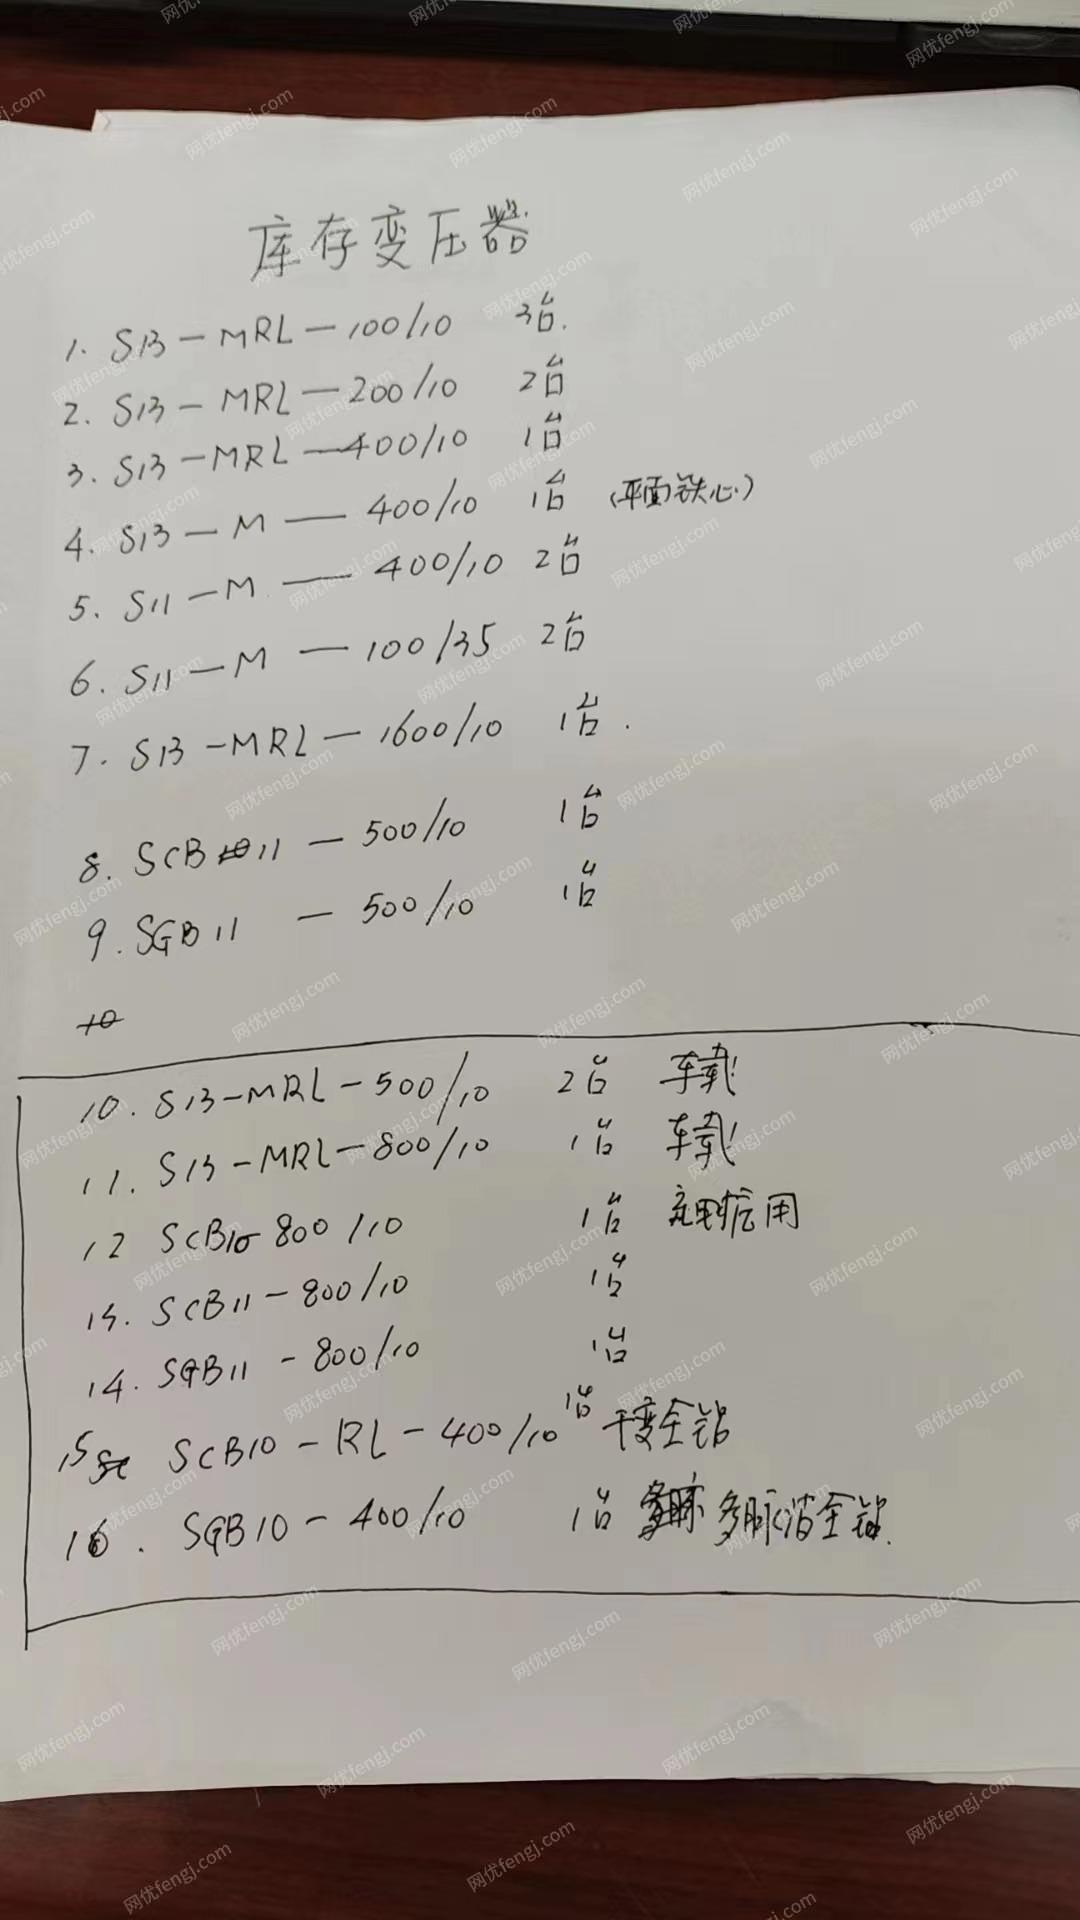 库存变压器
1. S13-MRL-100/10 3台.
2. S13-MRL-200/10 2台
3. S13-MRL-400/10 1台
4. S13-M-400/10 1台 (平面铁心)
5. S11-M-400/10 2台
6. S11-M-100/35 2台
7. S13-MRL-1600/10 1台.
8. SCB11-500/10 1台
9. SGB11-500/10 1台
10
10. S13-MRL-500/10 2台 车载
11. S13-MRL-800/10 1台 车载
12 SCB10-800/10 1台 充电桩用
13. SCB11-800/10 1台
14. SGB11-800/10 1台
15 SCB10-RL-400/10 1台 干变全铝
16. SGB10-400/10 1台 多脉 多脉 全
网优fengj.com